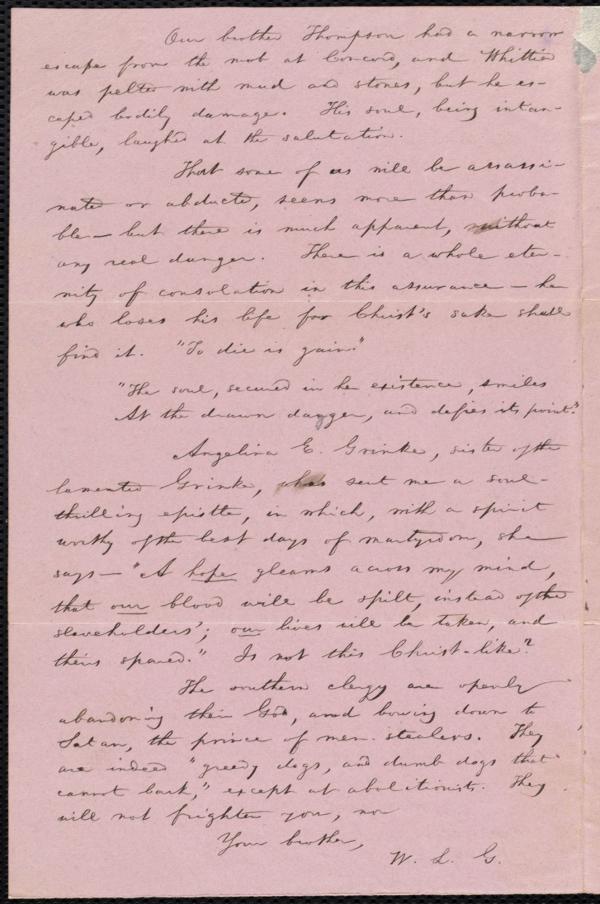 Our brother Thompson had a narrow
escape from the mob at Concord, and Whittier
was pelted with mud and stones, but he es-
caped bodily damage. His soul, being intan-
gible, laughed at the salutation.
That some of us will be assassi-
nated or abducted, seems more than proba-
ble — but there is much apparent, without
any real danger. There is a whole eter-
nity of consolation in this assurance — he
who loses his life for Christ's sake shall
find it. "To die is gain."
"The soul, secured in her existence, smiles
At the drawn dagger, and defies its point."
Angelina E. Grimke, sister of the
lamented Grimke, has sent me a soul-
thrilling epistle, in which, with a spirit
worthy of the best days of martyrdom, she
says — "A hope gleams across my mind,
that our blood will be spilt, instead of the
slaveholders'; our lives will be taken, and
theirs spared." Is not this Christ-like?
The southern clergy are openly
abandoning their God, and bowing down to
Satan, the prince of men-stealers. They
are indeed "greedy dogs, and dumb dogs that
cannot bark," except at abolitionists. They
will not frighten you, nor
Your brother,
W. L. G.